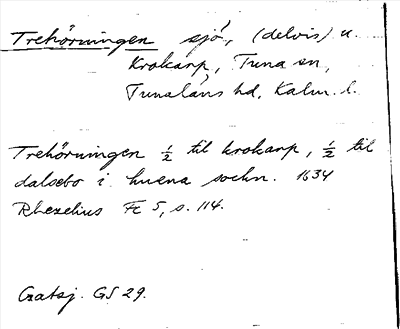 Trehörningen sjö, (delvis) u.
Krokarp, Tuna sn,
Tunaläns hd, Kalm. l.
Trehörningen ½ til krokarp, ½ til
dalsebo i huena sochn. 1634
Rhezelius Fc 5, s. 114.
Crataj. GS 29.